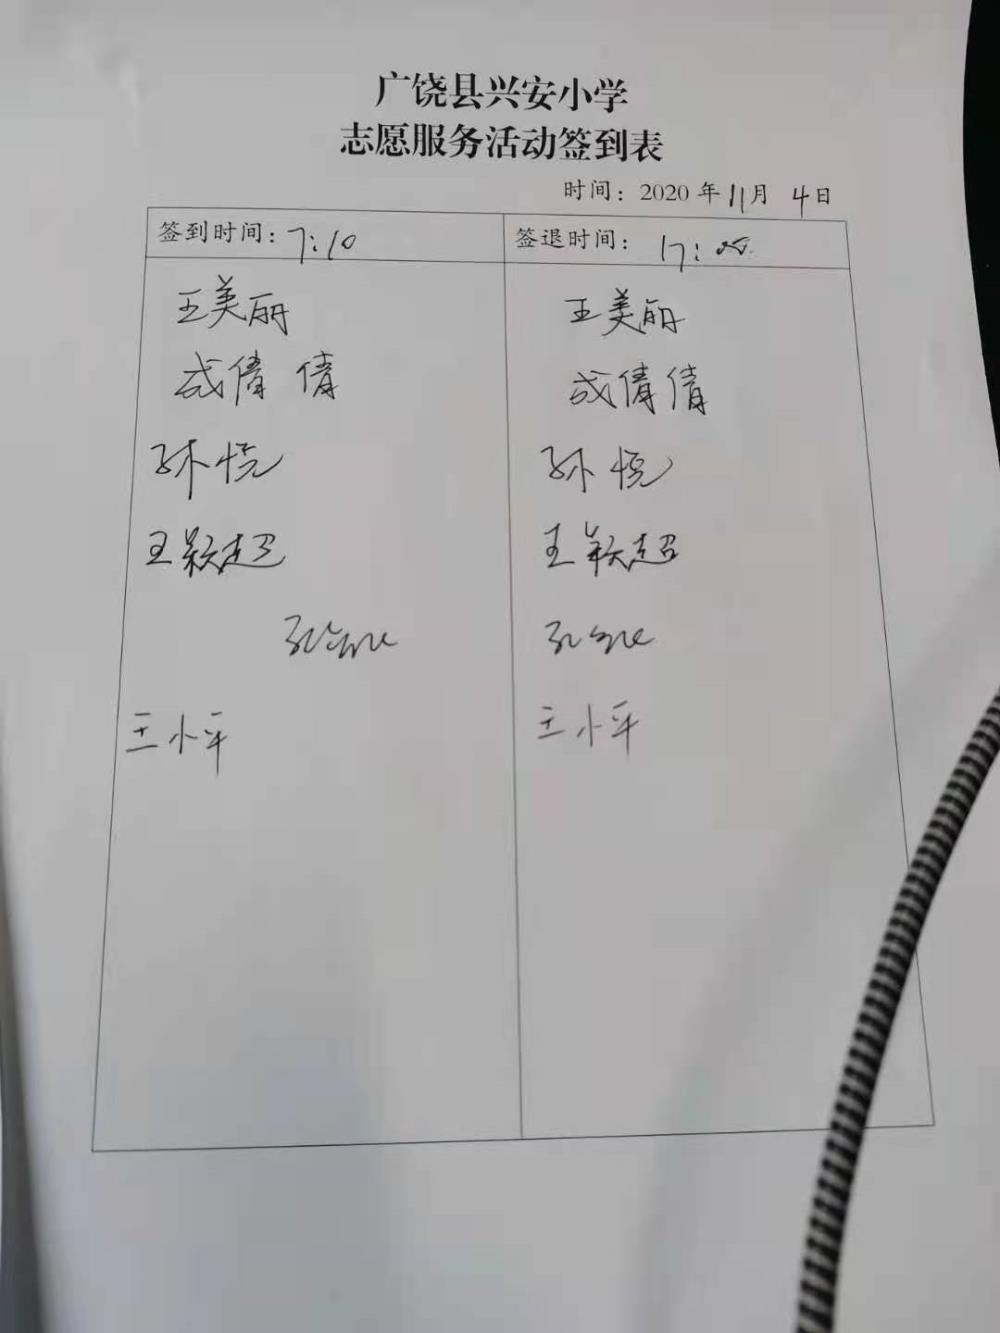 广饶县兴安小学
志愿服务活动签到表
时间：2020年11月4日
签到时间：7:10 签退时间：17:05
王美丽 王美丽
成倩倩 成倩倩
孙悦 孙悦
王颖超 王颖超
王小平 王小平